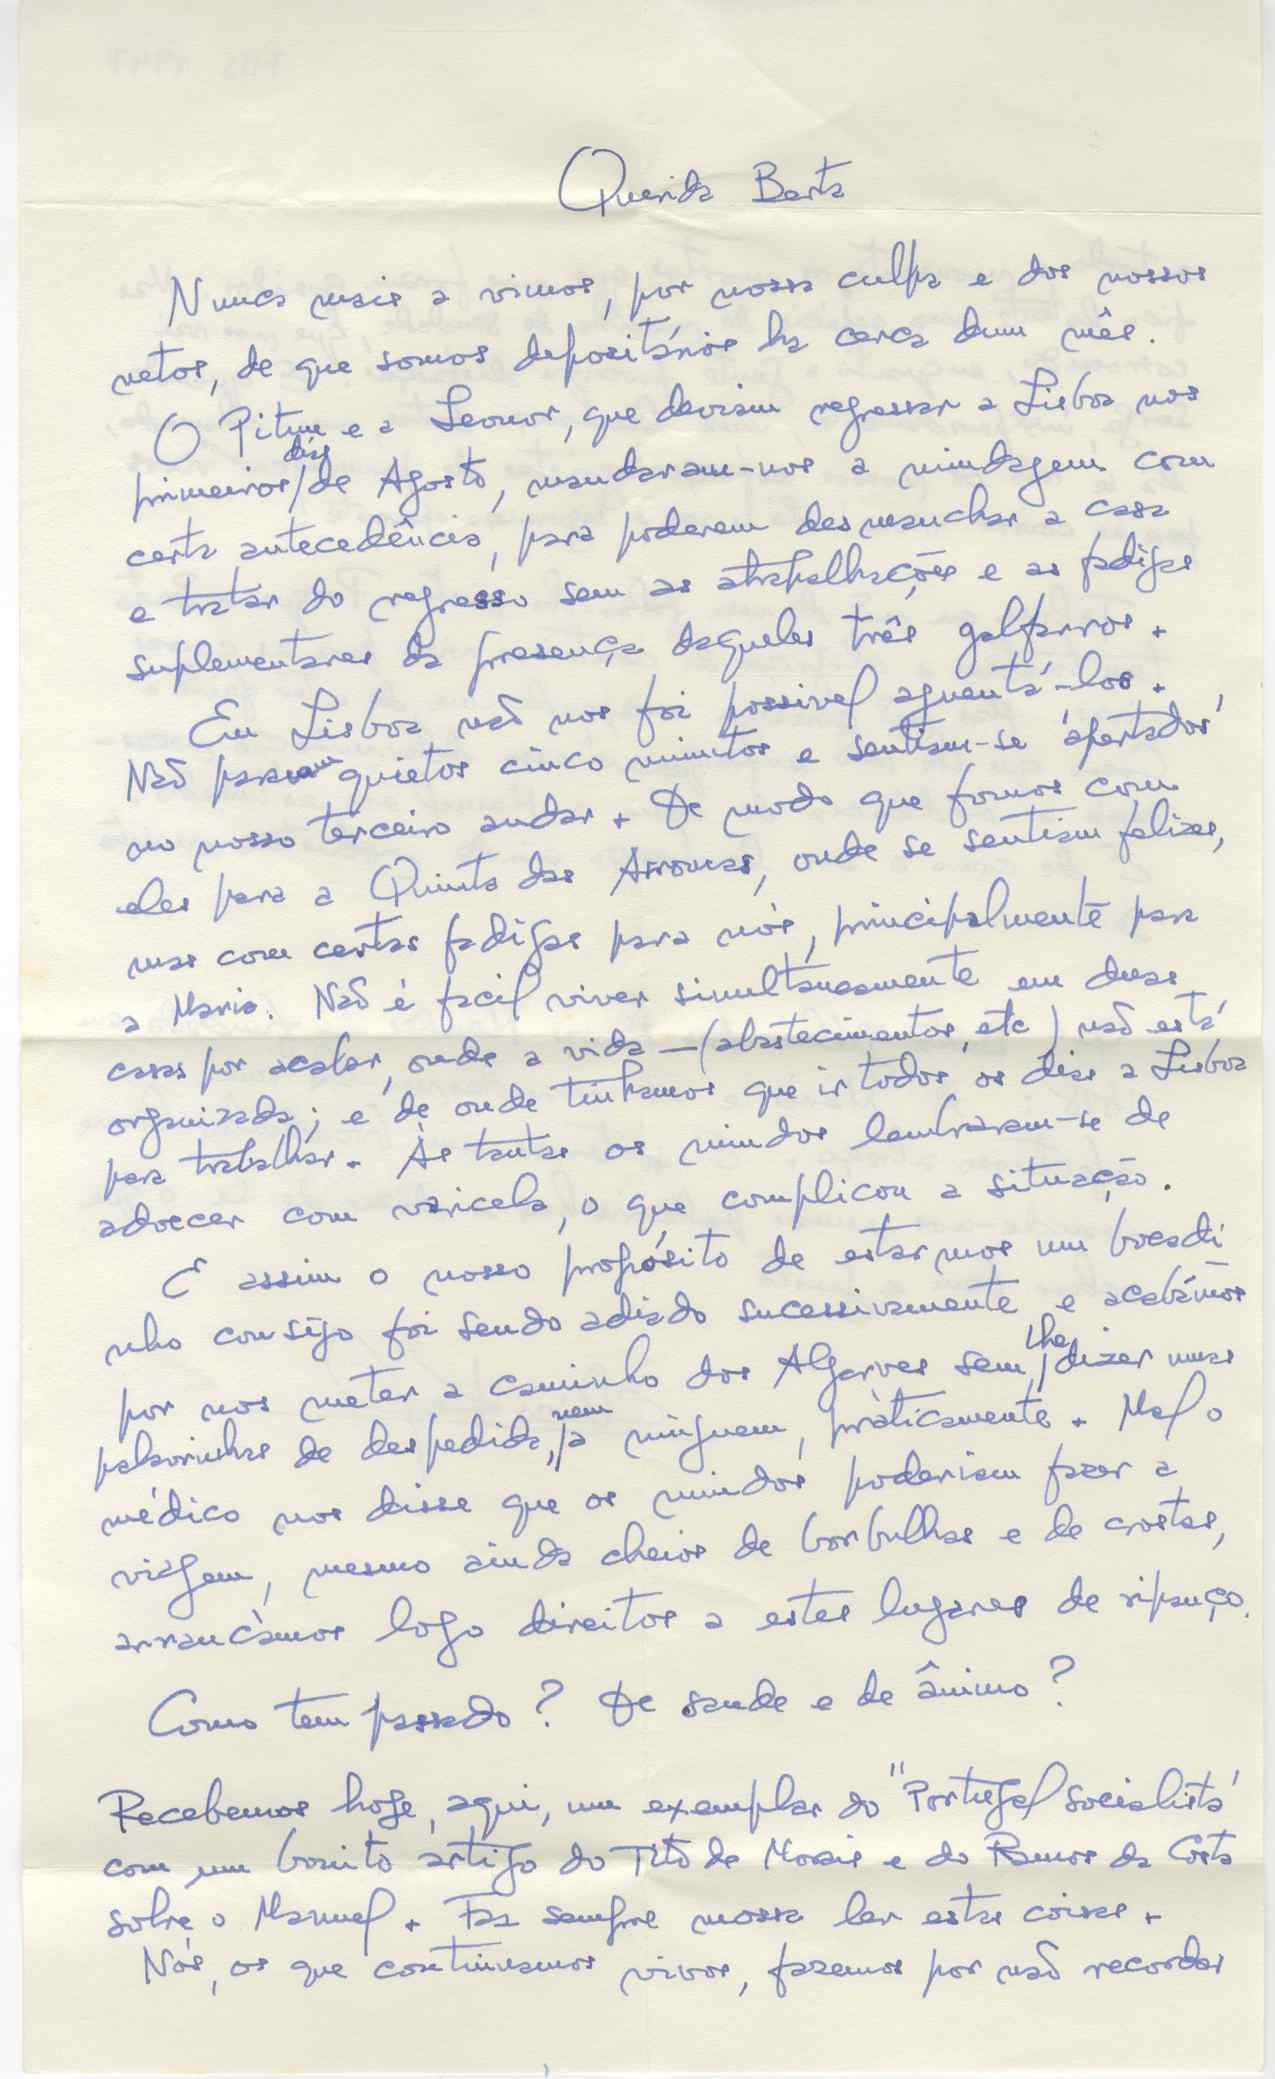 Querida Berta
Nunca mais a vimos, por nossa culpa e dos nossos
netos, de que somos depositários ha cerca dum mês.
O Pitum e a Leonor, que deviam regressar a Lisboa nos
primeiros dias de Agosto, mandaram-nos a miudagem com
certa antecedência, para poderem desmanchar a casa
e tratar do regresso sem as atrapalhações e as fadigas
suplementares da presença daqueles três galfarros.
Em Lisboa não nos foi possivel aguentá-los.
Não param quietos cinco minutos e sentiam-se 'apertados'
no nosso terceiro andar. De modo que fomos com
eles para a Quinta das Arromas, onde se sentiam felizes,
mas com certas fadigas para nós, principalmente para
a Maria. Não é facil viver simultaneamente em duas
casas por acabar, onde a vida — (abastecimentos, etc) não está
organizada; e de onde tinhamos que ir todos os dias a Lisboa
para trabalhar. Às tantas os miudos lembraram-se de
adoecer com varicela, o que complicou a situação.
E assim o nosso propósito de estarmos um bocadi
nho consigo foi sendo adiado sucessivamente e acabámos
por nos meter a caminho dos Algarves sem lhe dizer umas
palavrinhas de despedida, nem a ninguem, pràticamente. Mal o
médico nos disse que os miudos poderiam fazer a
viagem, mesmo ainda cheios de borbulhas e de crostas,
arrancàmos logo direitos a estes lugares de ripanço.
Como tem passado? De saude e de ânimo?
Recebemos hoje, aqui, um exemplar do "Portugal Socialista"
com um bonito artigo do Tito de Morais e do Ramos da Costa
sobre o Manuel. Faz sempre mossa ler estas coisas.
Nós, os que continuamos vivos, fazemos por não recordar